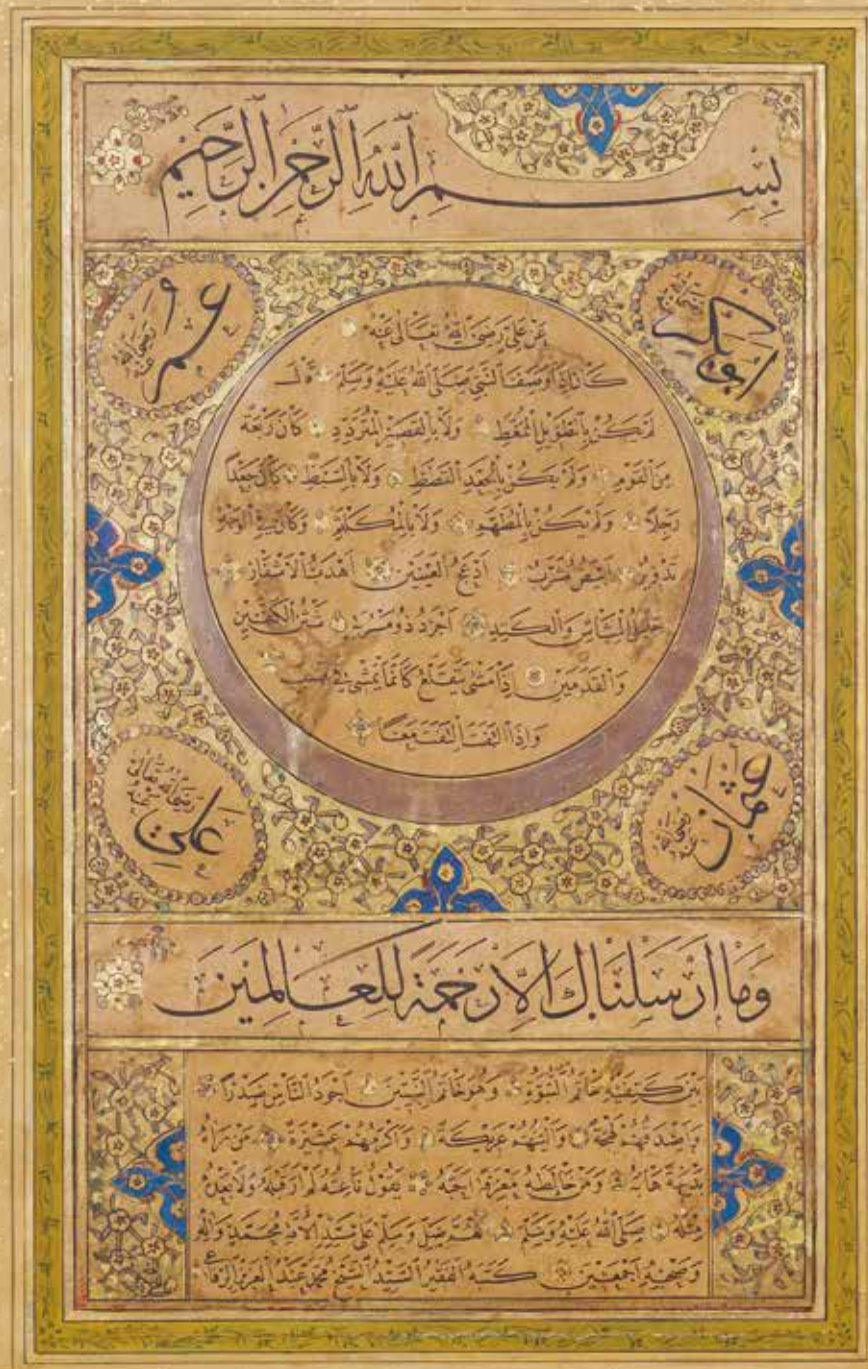 بِسْمِ اللهِ الرَّحْمٰنِ الرَّحِيمِ
ابو بكر رضى الله عنه
عمر رضى الله عنه
عَنْ عَلِىٍّ رَضِىَ اللهُ تَعَالٰى عَنْهُ
كَانَ اِذَا وَصَفَ النَّبِىَّ صَلَّى اللهُ عَلَيْهِ وَسَلَّمَ قَالَ
لَمْ يَكُنْ بِالطَّوِيلِ الْمُمَّغِطِ وَلَا بِالْقَصِيرِ الْمُتَرَدِّدِ كَانَ رَبْعَةً
مِنَ الْقَوْمِ وَلَمْ يَكُنْ بِالْجَعْدِ الْقَطَطِ وَلَا بِالسَّبِطِ كَانَ جَعْدًا
رَجِلًا وَلَمْ يَكُنْ بِالْمُطَهَّمِ وَلَا بِالْمُكَلْثَمِ وَكَانَ فِى الْوَجْهِ
تَدْوِيرٌ اَبْيَضُ مُشْرَبٌ اَدْعَجُ الْعَيْنَيْنِ اَهْدَبُ الْاَشْفَارِ
جَلِيلُ الْمُشَاشِ وَالْكَتَدِ اَجْرَدُ ذُو مَسْرُبَةٍ شَثْنُ الْكَفَّيْنِ
وَالْقَدَمَيْنِ اِذَا مَشٰى يَتَقَلَّعُ كَاَنَّمَا يَمْشِى فِى صَبَبٍ
وَاِذَا الْتَفَتَ الْتَفَتَ مَعًا
عثمان رضى الله عنه
على رضى الله تعالى عنه
وَمَا اَرْسَلْنَاكَ اِلَّا رَحْمَةً لِلْعَالَمِينَ
بَيْنَ كَتِفَيْهِ خَاتَمُ النُّبُوَّةِ وَهُوَ خَاتَمُ النَّبِيِّينَ اَجْوَدُ النَّاسِ صَدْرًا
وَاَصْدَقُهُمْ لَهْجَةً وَاَلْيَنُهُمْ عَرِيكَةً وَاَكْرَمُهُمْ عَشِيرَةً مَنْ رَاٰهُ
بَدِيهَةً هَابَهُ وَمَنْ خَالَطَهُ مَعْرِفَةً اَحَبَّهُ يَقُولُ نَاعِتُهُ لَمْ اَرَ قَبْلَهُ وَلَا بَعْدَهُ
مِثْلَهُ صَلَّى اللهُ عَلَيْهِ وَسَلَّمَ اللّٰهُمَّ صَلِّ وَسَلِّمْ عَلٰى مُحَمَّدٍ وَاٰلِهِ
وَصَحْبِهِ اَجْمَعِينَ كَتَبَهُ الْفَقِيرُ السَّيِّدُ الشَّيْخُ مُحَمَّدُ عَبْدُ الْعَزِيزِ الرِّفَاعِى